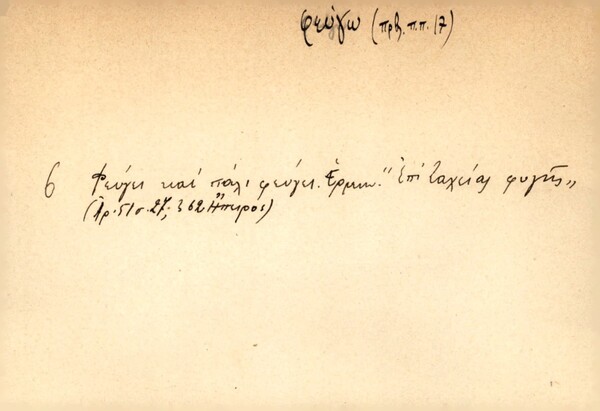 φεύγω (πρβ. π.π. 17)
6 Φεύγει καί πάλι φεύγει. Ἑρμην. "Ἐπί ταχείας φυγῆς„
(Ἀρ. 51 σ. 27, 362 Ἤπειρος)